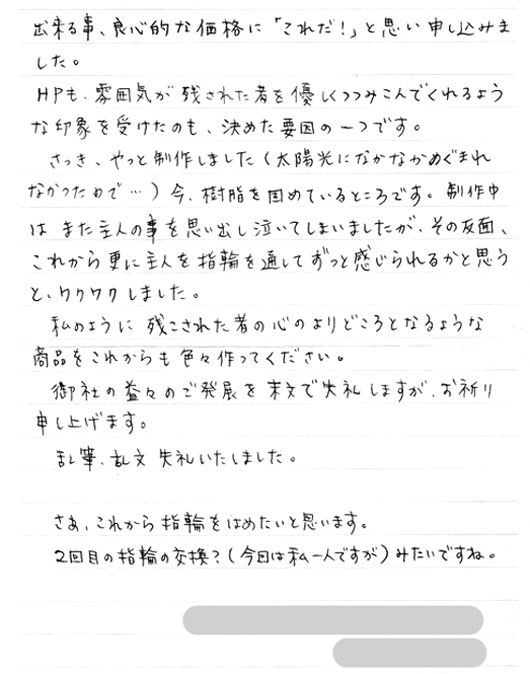 出来る事、良心的な価格に「これだ!」と思い申し込みま
した。
HPも、雰囲気が残された者を優しくつつみこんでくれるよう
な印象を受けたのも、決めた要因の一つです。
さっき、やっと制作しました(太陽光になかなかめぐまれ
なかったので…)今、樹脂を固めているところです。制作中
は また主人の事を思い出し泣いてしまいましたが、その反面、
これから更に主人を指輪を通してずっと感じられるかと思う
と、ワクワクしました。
私のように 残こされた者の心のよりどころとなるような
商品をこれからも色々作ってください。
御社の益々のご発展を 末文で失礼しますが、お祈り
申し上げます。
乱筆、乱文 失礼いたしました。
さあ、これから指輪をはめたいと思います。
2回目の指輪の交換?(今回は私一人ですが)みたいですね。